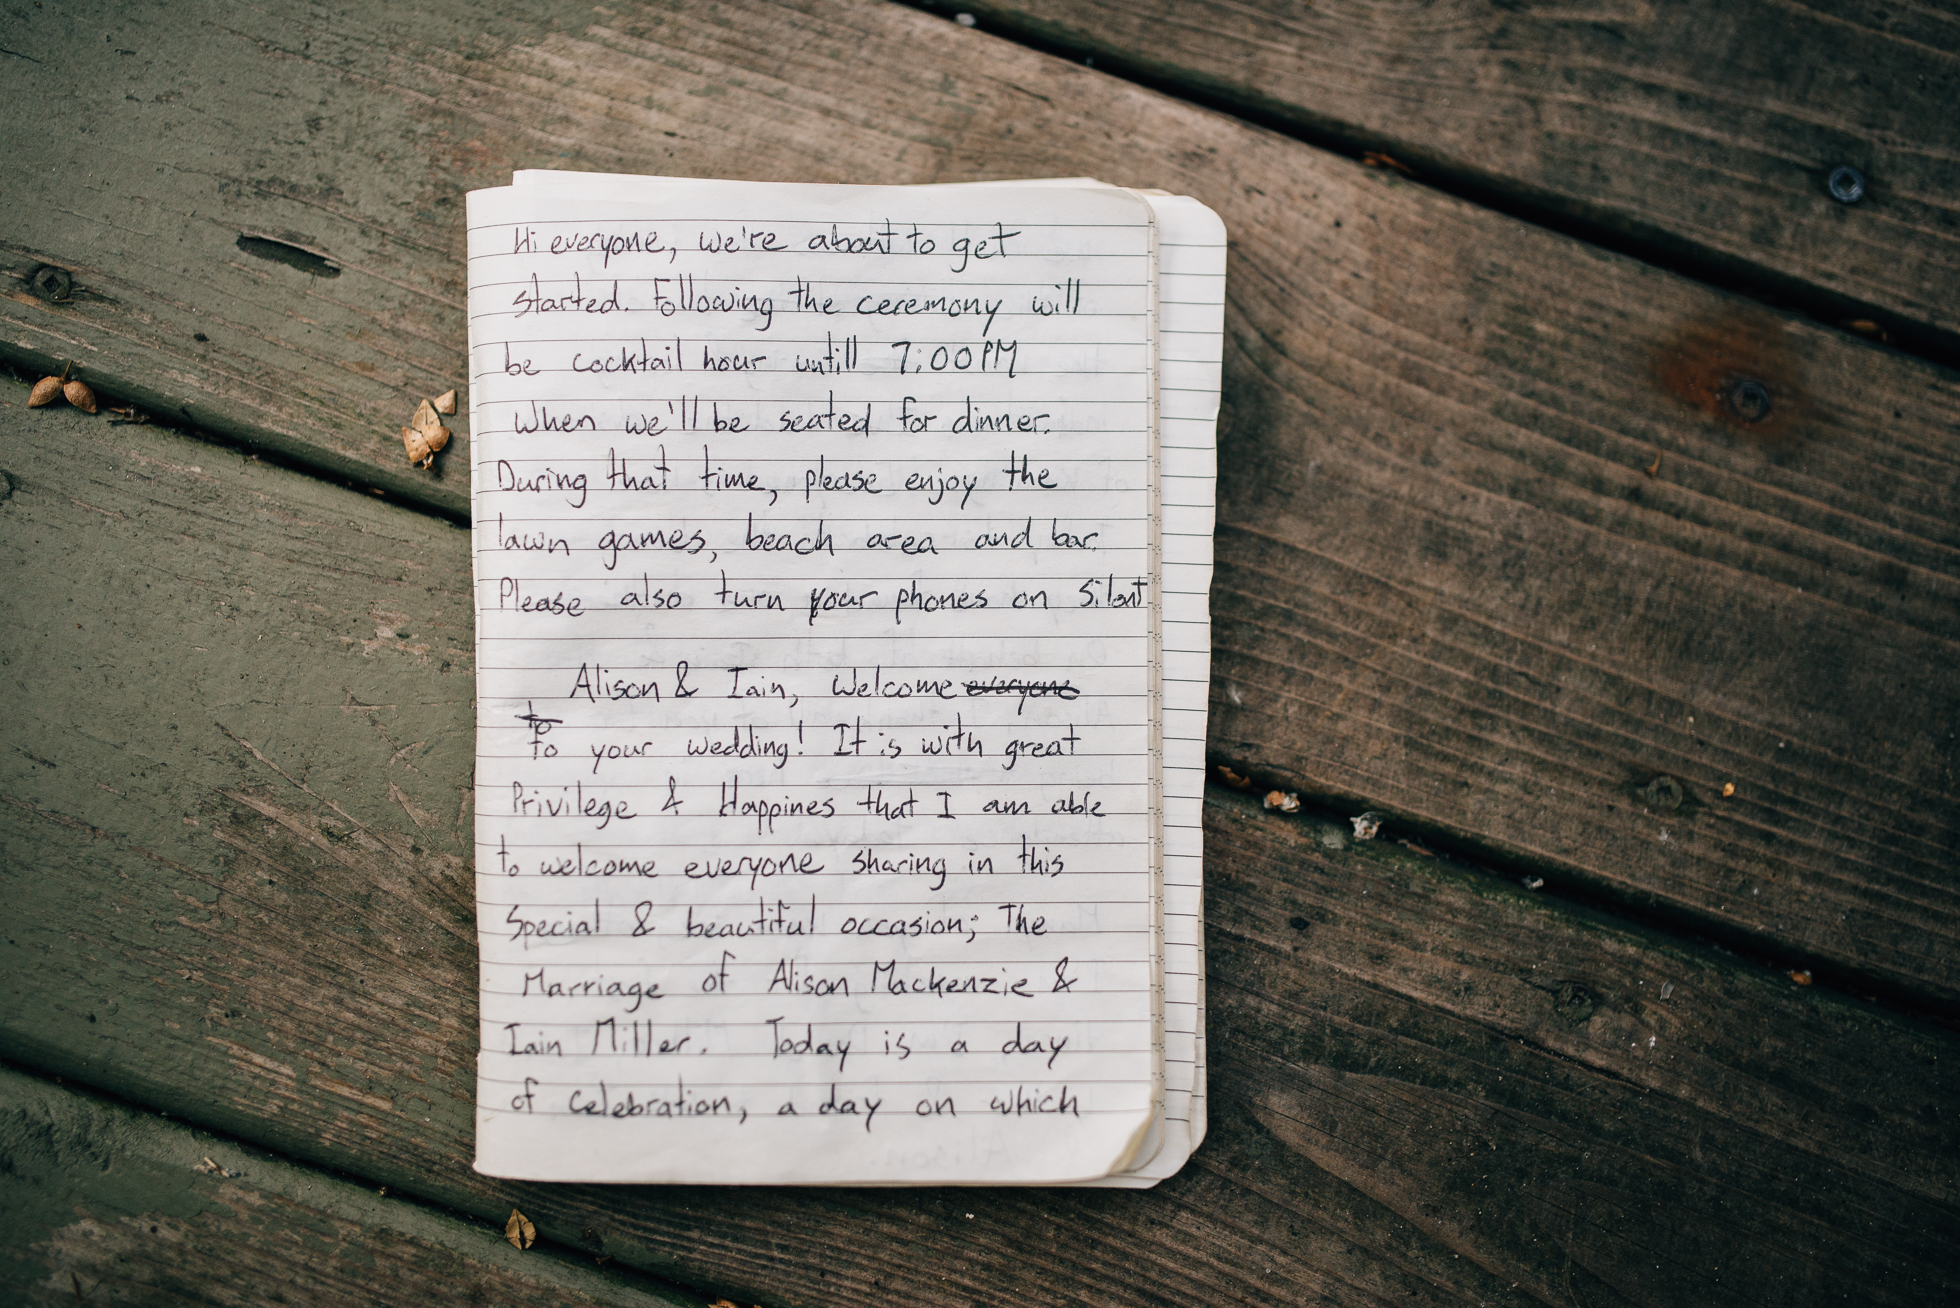 Hi everyone, we're about to get
started. Following the ceremony will
be cocktail hour untill 7:00PM
When we'll be seated for dinner.
During that time, please enjoy the
lawn games, beach area and bar.
Please also turn your phones on Silent
Alison & Iain, Welcome everyone
to
to your wedding! It is with great
Privilege & Happines that I am able
to welcome everyone sharing in this
Special & beautiful occasion; The
Marriage of Alison Mackenzie &
Iain Miller. Today is a day
of Celebration, a day on which